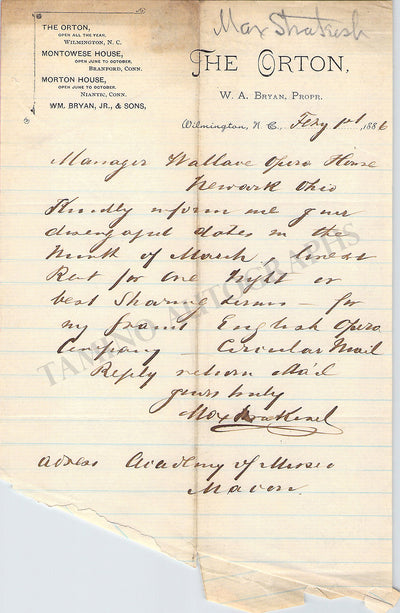 Max Strakosh
THE ORTON,
OPEN ALL THE YEAR,
WILMINGTON, N. C.
MONTOWESE HOUSE,
OPEN JUNE TO OCTOBER,
BRANFORD, CONN.
MORTON HOUSE,
OPEN JUNE TO OCTOBER,
NIANTIC, CONN.
WM. BRYAN, JR., & SONS,
THE ORTON,
W. A. BRYAN, PROPR.
Wilmington, N. C., Feby 1st 1886
Manager Wallace Opera House
Newark Ohio
Kindly inform me your
disengaged dates in the
Month of March, lowest
Rent for one night or
best Sharing terms – for
my grand English Opera
Company – Circular Mail
Reply return Mail
yours truly
Max Strakosch
adress Academy of Music
Macon.
TAMINO AUTOGRAPHS